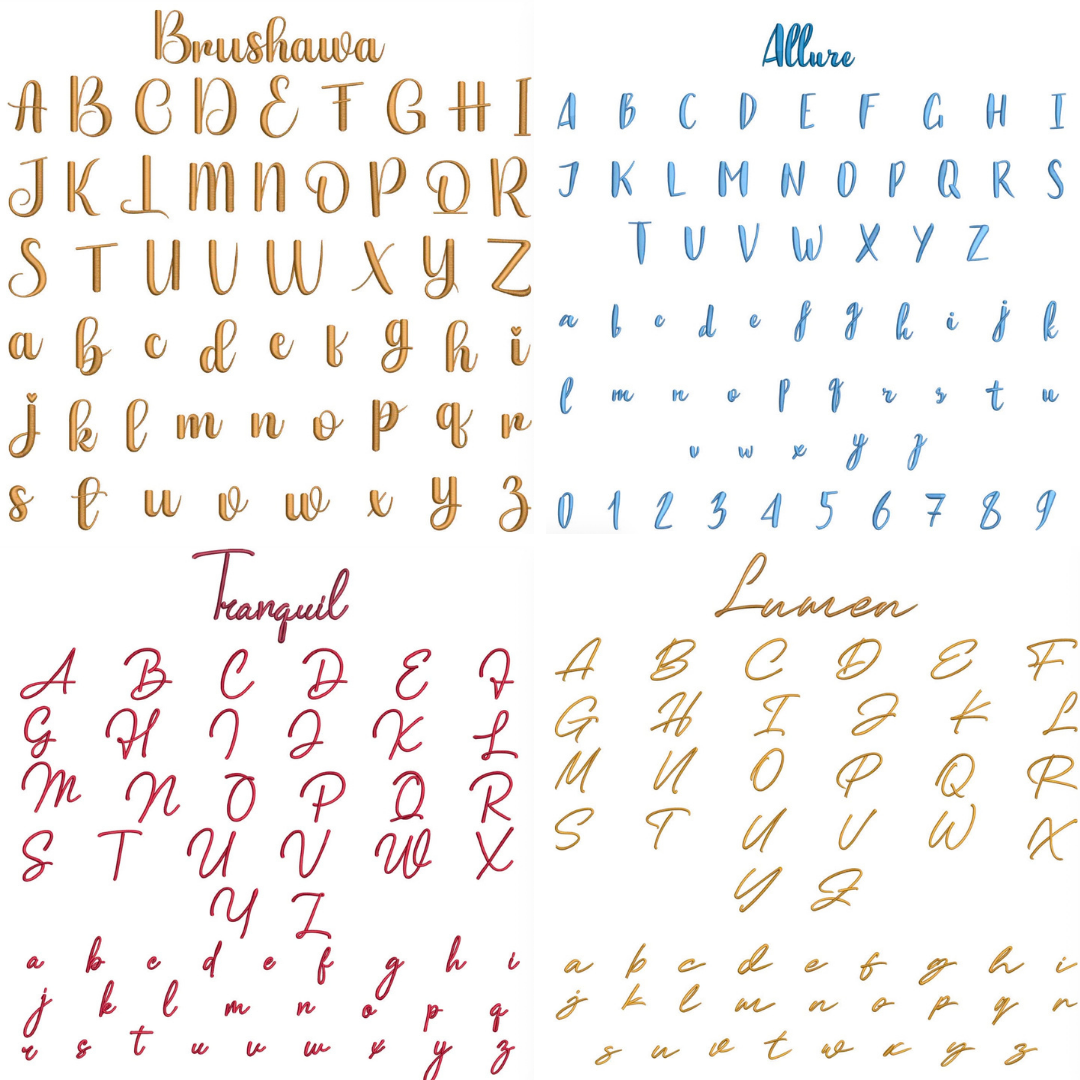 Brushawa
A B C D E F G H I
J K L M N O P Q R
S T U V W X Y Z
a b c d e f g h i
j k l m n o p q r
s t u v w x y z
Allure
A B C D E F G H I
J K L M N O P Q R S
T U V W X Y Z
a b c d e f g h i j k
l m n o p q r s t u
v w x y z
0 1 2 3 4 5 6 7 8 9
Tranquil
A B C D E F
G H I J K L
M N O P Q R
S T U V W X
Y Z
a b c d e f g h i
j k l m n o p q
r s t u v w x y z
Lumen
A B C D E F
G H I J K L
M N O P Q R
S T U V W X
Y Z
a b c d e f g h i
j k l m n o p q r
s u v t w x y z